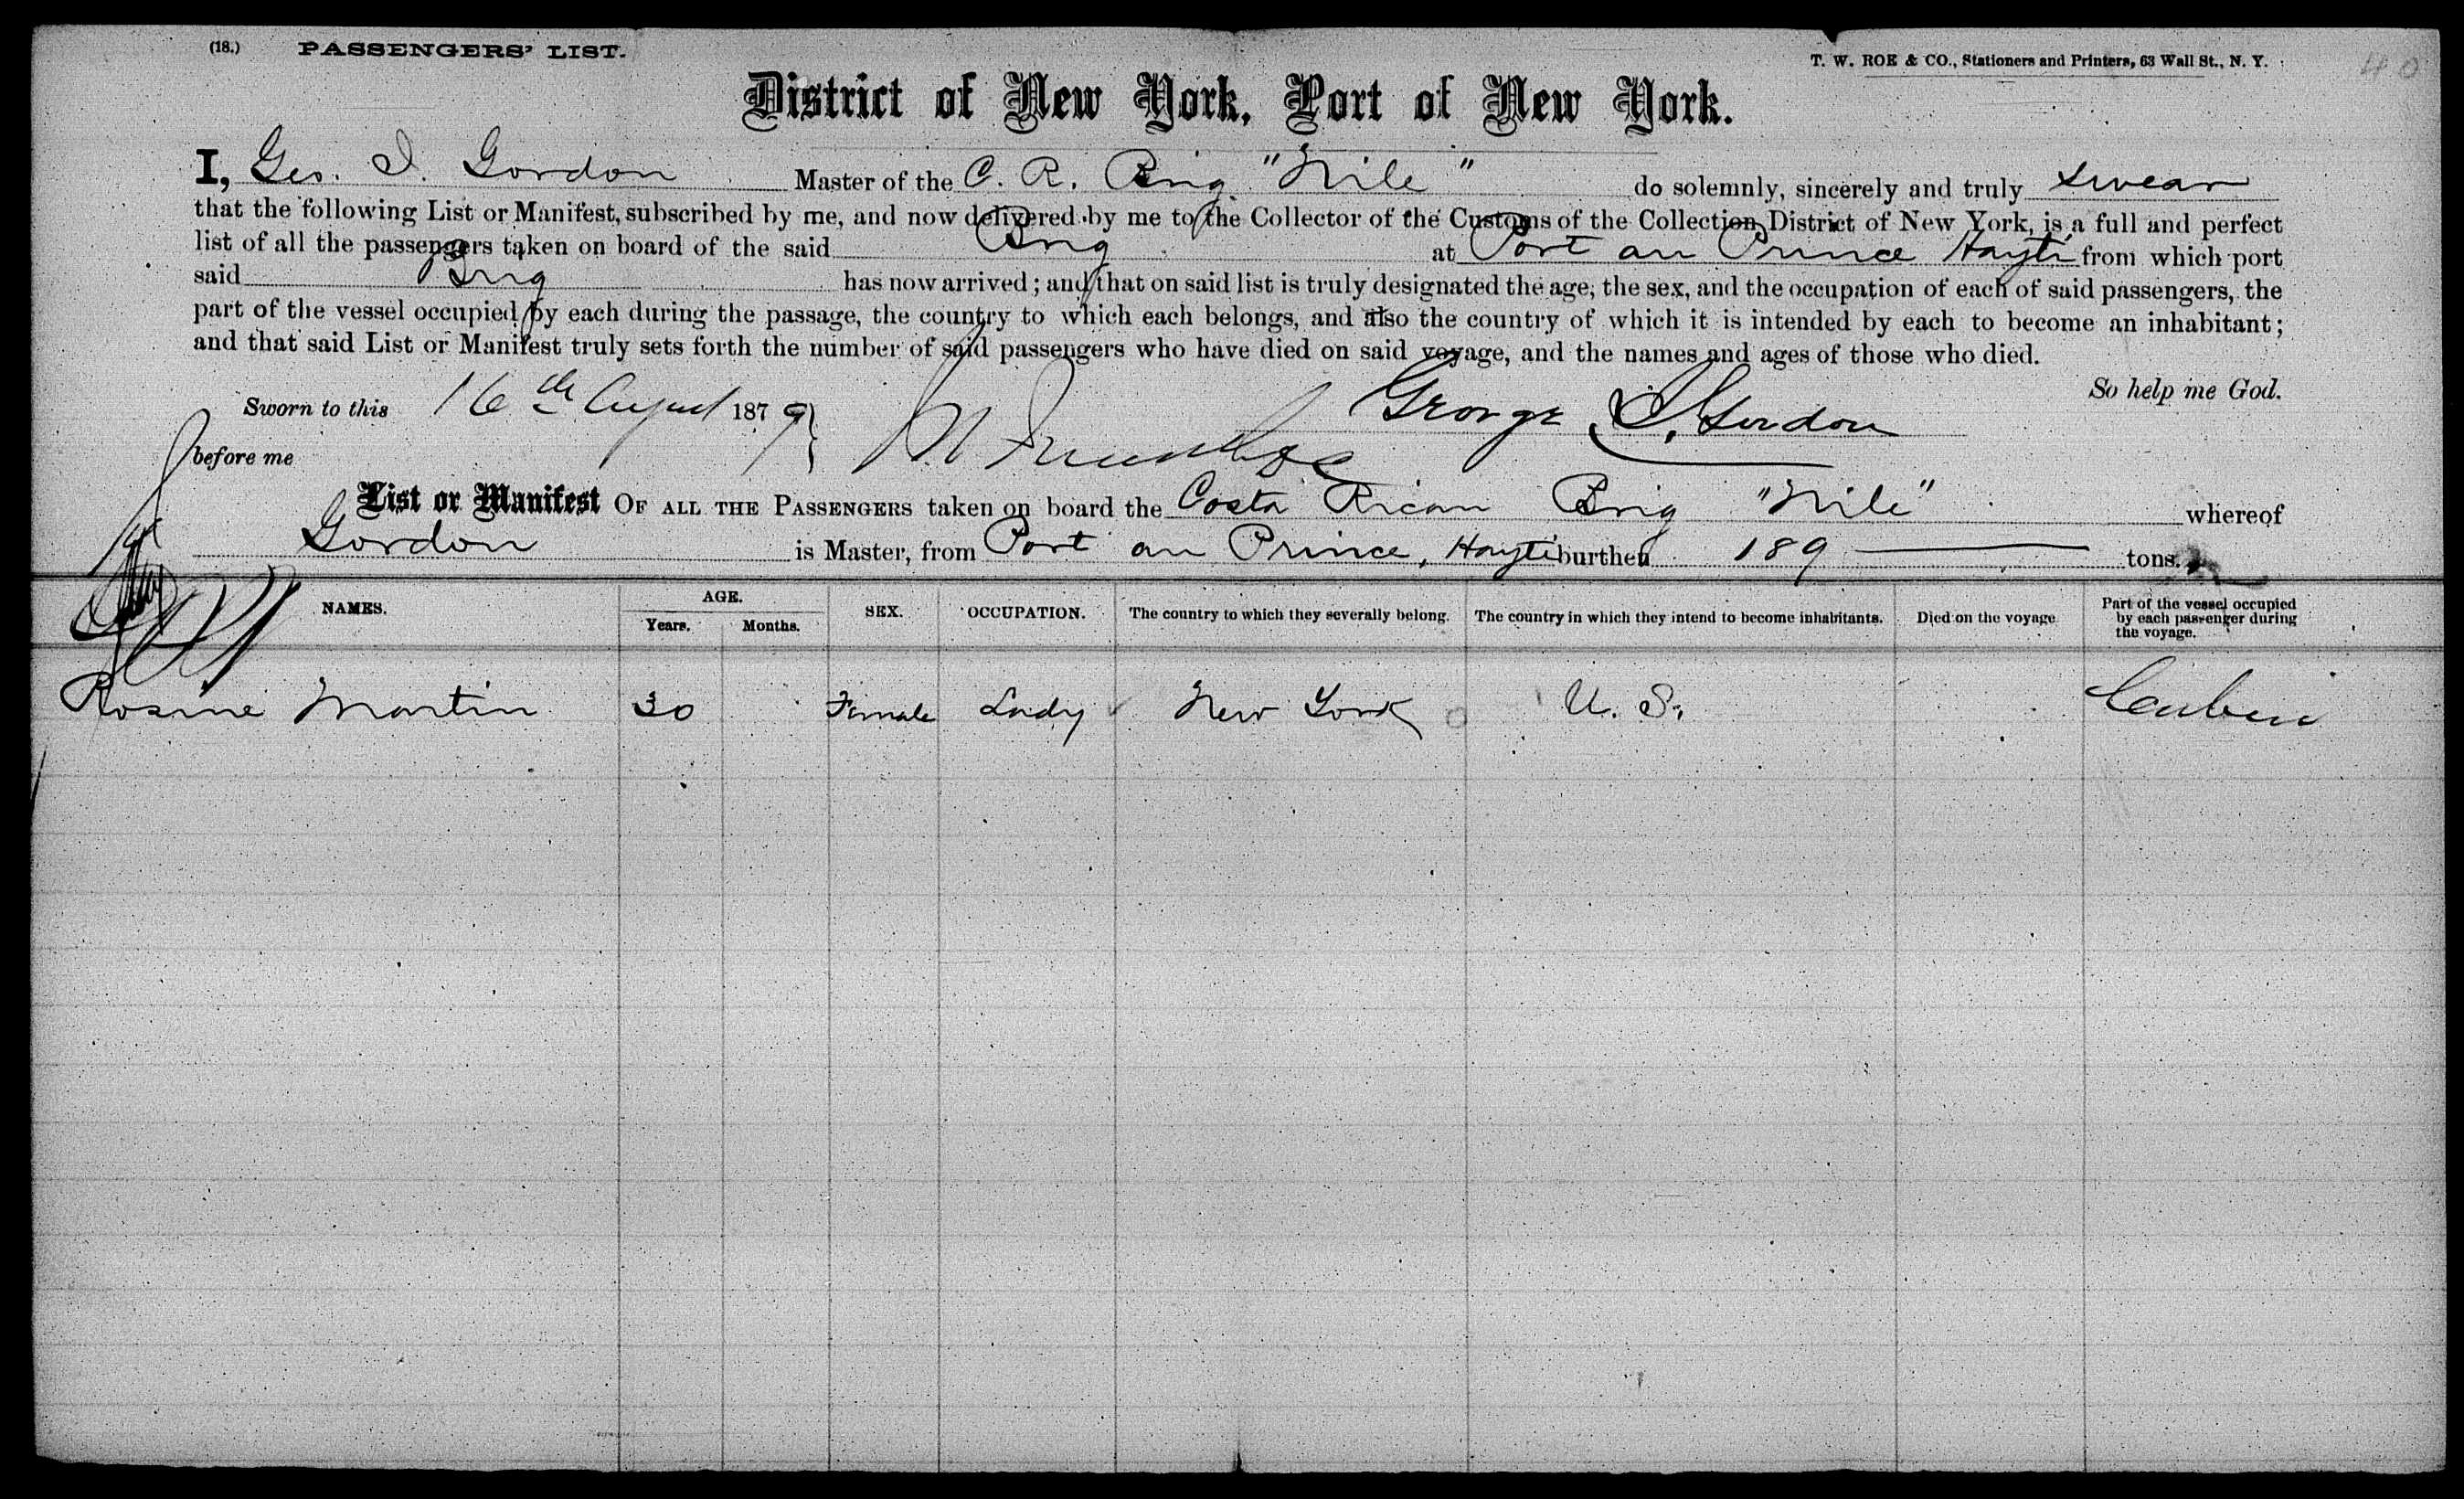 (18.) PASSENGERS' LIST.
T. W. ROE & CO., Stationers and Printers, 63 Wall St., N. Y.
40
District of New York, Port of New York.
I, Geo. I. Gordon Master of the C. R. Brig "Nile" do solemnly, sincerely and truly swear
that the following List or Manifest, subscribed by me, and now delivered by me to the Collector of the Customs of the Collection District of New York, is a full and perfect
list of all the passengers taken on board of the said Brig at Port au Prince Hayti from which port
said Brig has now arrived; and that on said list is truly designated the age, the sex, and the occupation of each of said passengers, the
part of the vessel occupied by each during the passage, the country to which each belongs, and also the country of which it is intended by each to become an inhabitant;
and that said List or Manifest truly sets forth the number of said passengers who have died on said voyage, and the names and ages of those who died.
So help me God.
Sworn to this 16th August 1879
George I. Gordon
before me
List or Manifest OF ALL THE PASSENGERS taken on board the Costa Rican Brig "Nile" whereof
Gordon is Master, from Port au Prince, Hayti burthen 189 tons.
NAMES. AGE. Years. Months. SEX. OCCUPATION. The country to which they severally belong. The country in which they intend to become inhabitants. Died on the voyage Part of the vessel occupied by each passenger during the voyage.
Rosine Martin 30 Female Lady New York U. S. Cabin